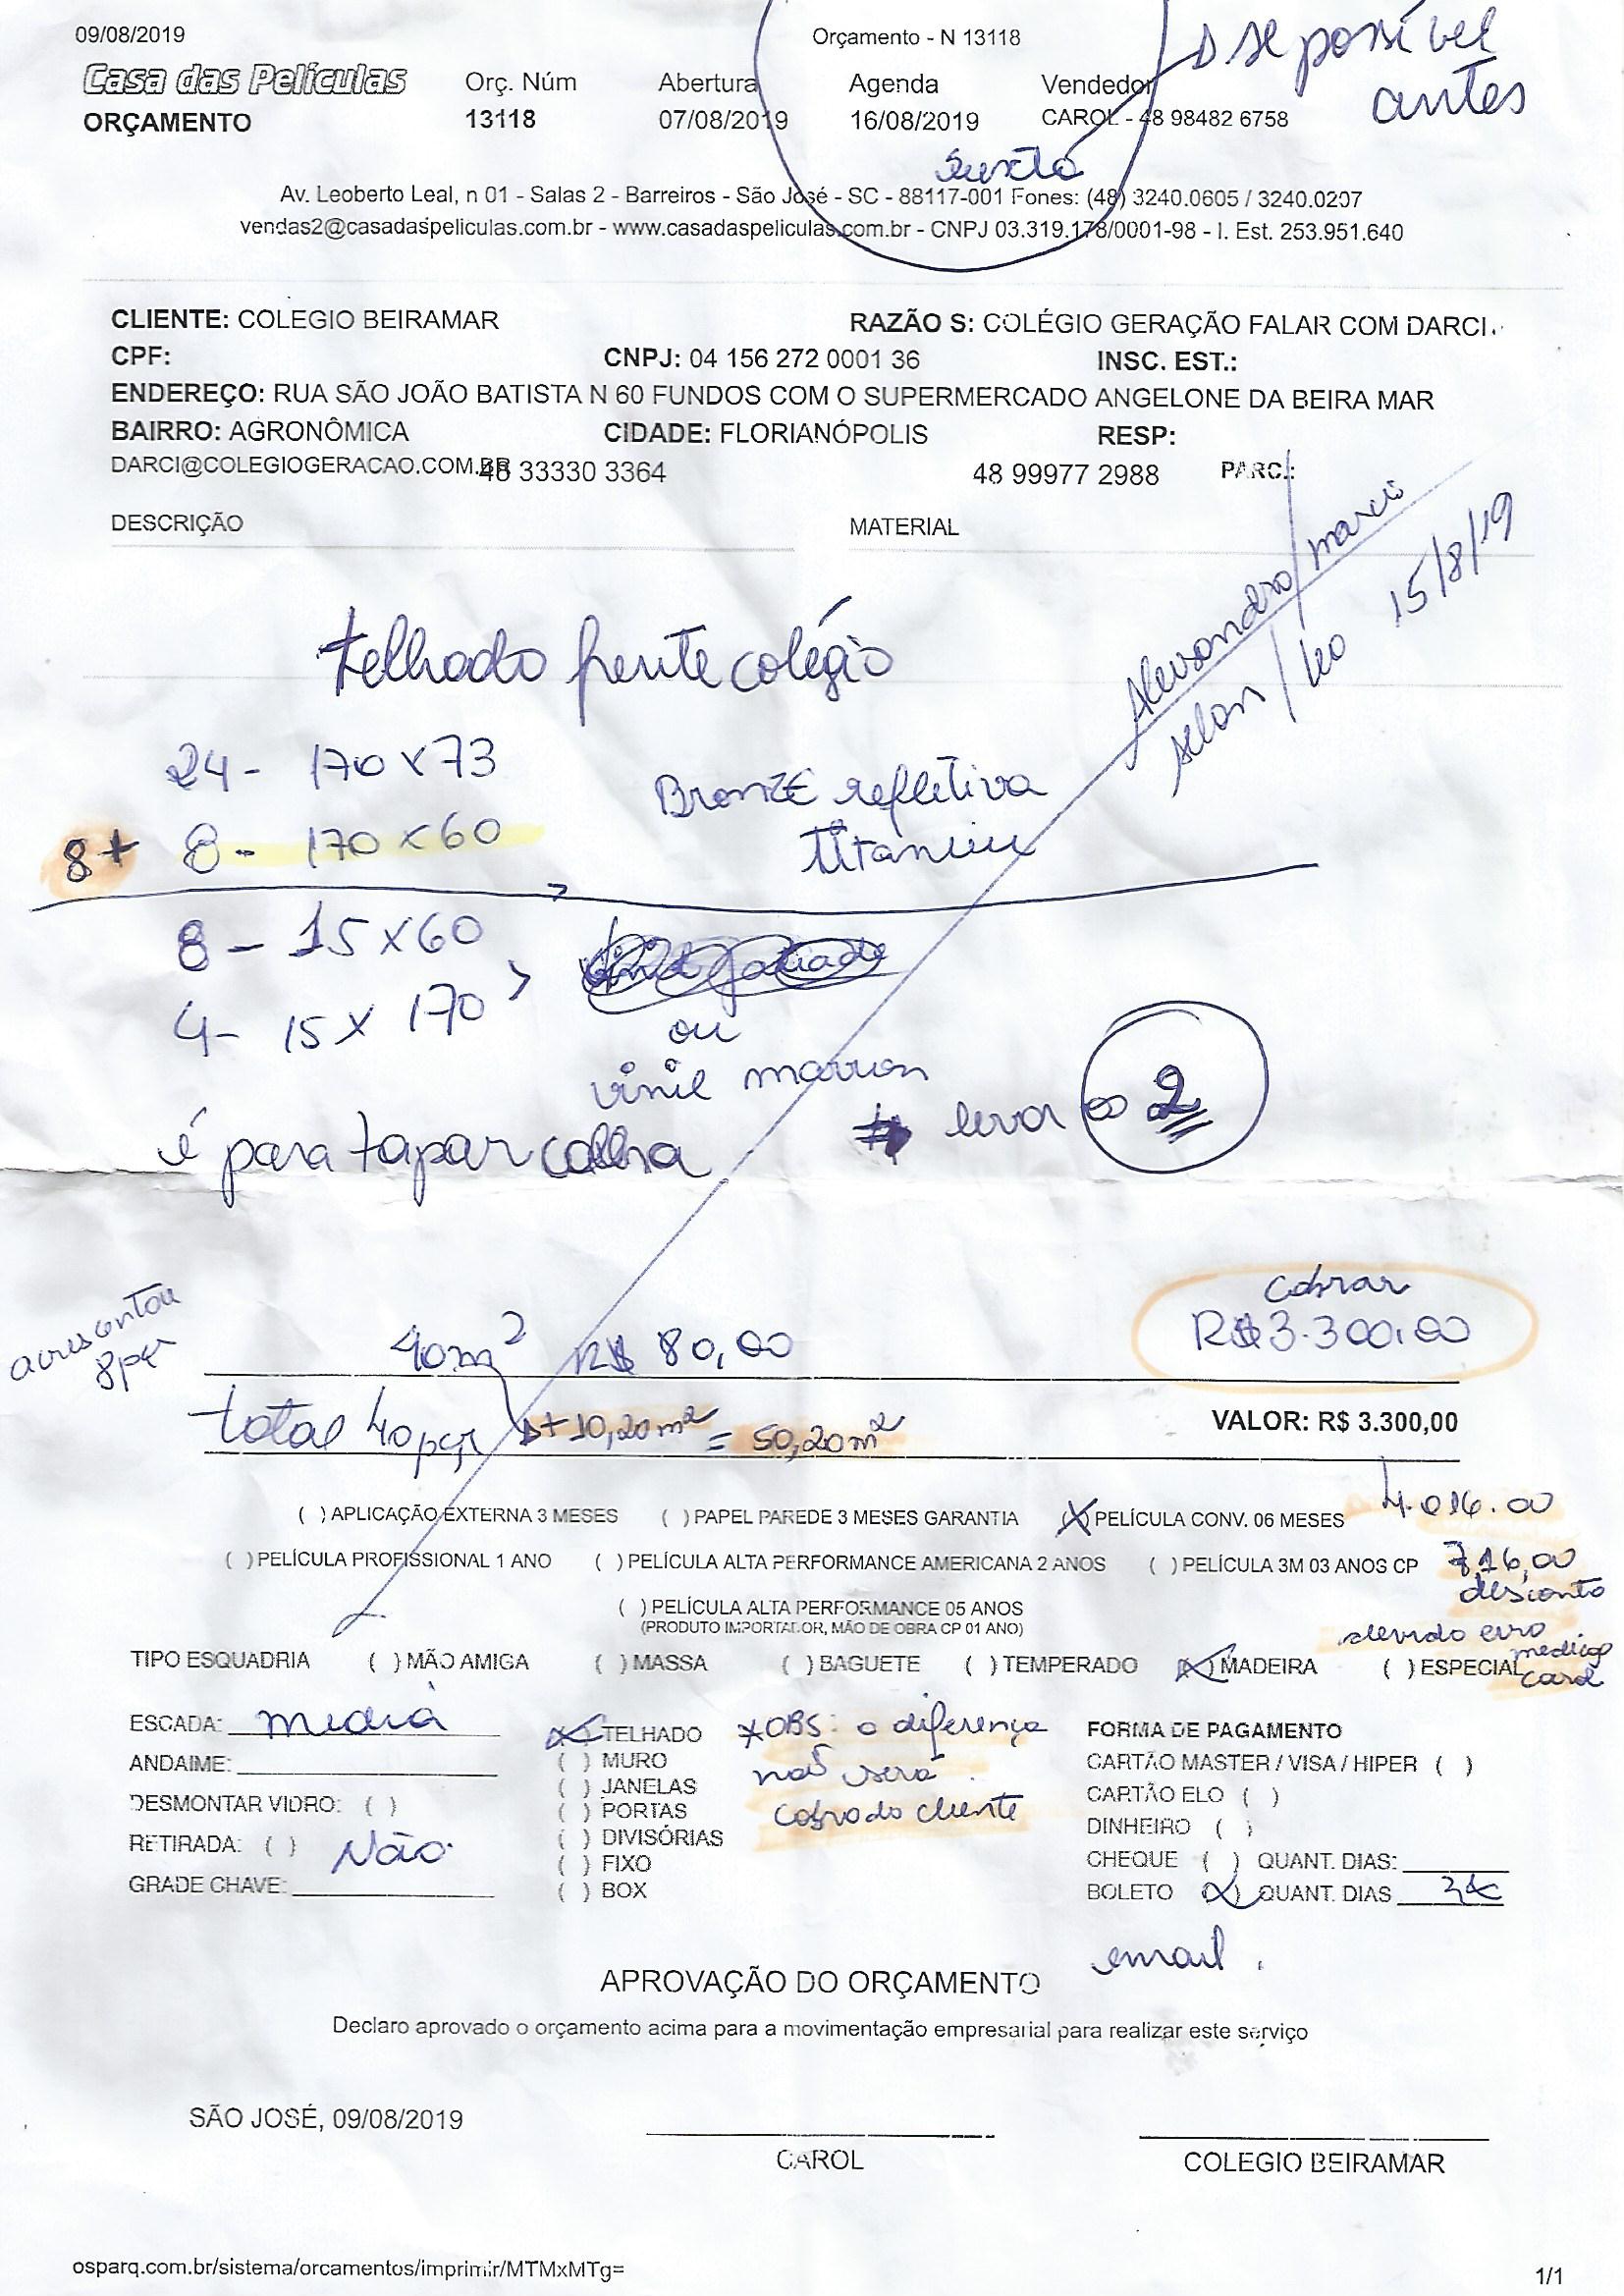 09/08/2019 Orçamento - N 13118
se possível
antes
Casa das Películas Orç. Núm Abertura Agenda Vendedor
ORÇAMENTO 13118 07/08/2019 16/08/2019 CAROL - 48 98482 6758
sexta
Av. Leoberto Leal, n 01 - Salas 2 - Barreiros - São José - SC - 88117-001 Fones: (48) 3240.0605 / 3240.0207
vendas2@casadaspeliculas.com.br - www.casadaspeliculas.com.br - CNPJ 03.319.178/0001-98 - I. Est. 253.951.640
CLIENTE: COLEGIO BEIRAMAR RAZÃO S: COLÉGIO GERAÇÃO FALAR COM DARCI.
CPF: CNPJ: 04 156 272 0001 36 INSC. EST.:
ENDEREÇO: RUA SÃO JOÃO BATISTA N 60 FUNDOS COM O SUPERMERCADO ANGELONE DA BEIRA MAR
BAIRRO: AGRONÔMICA CIDADE: FLORIANÓPOLIS RESP:
DARCI@COLEGIOGERACAO.COM.BR 48 33330 3364 48 99977 2988 PARC.:
DESCRIÇÃO MATERIAL
Alessandro/marcio
/leo 15/8/19
telhado frente colégio
24 - 170 x 73 Bronze refletiva
8+ 8 - 170 x 60 titanium
8 - 15 x 60
4 - 15 x 170 >
ou
vinil marron
é para tapar calha levar os 2
acrescentou
8 pçs
cobrar
40m² R$ 80,00 R$ 3.300,00
total 40 pçs + 10,20m² = 50,20m² VALOR: R$ 3.300,00
4.016.00
( ) APLICAÇÃO EXTERNA 3 MESES ( ) PAPEL PAREDE 3 MESES GARANTIA (X) PELÍCULA CONV. 06 MESES
( ) PELÍCULA PROFISSIONAL 1 ANO ( ) PELÍCULA ALTA PERFORMANCE AMERICANA 2 ANOS ( ) PELÍCULA 3M 03 ANOS CP 716,00
desconto
( ) PELÍCULA ALTA PERFORMANCE 05 ANOS
(PRODUTO IMPORTADOR, MÃO DE OBRA CP 01 ANO)
devido erro
medição
Carol
TIPO ESQUADRIA ( ) MÃO AMIGA ( ) MASSA ( ) BAGUETE ( ) TEMPERADO (X) MADEIRA ( ) ESPECIAL
ESCADA: média
ANDAIME:
DESMONTAR VIDRO: ( )
RETIRADA: ( ) Não
GRADE CHAVE:
(X) TELHADO
( ) MURO
( ) JANELAS
( ) PORTAS
( ) DIVISÓRIAS
( ) FIXO
( ) BOX
*OBS: a diferença
não será
cobrado cliente
FORMA DE PAGAMENTO
CARTÃO MASTER / VISA / HIPER ( )
CARTÃO ELO ( )
DINHEIRO ( )
CHEQUE ( ) QUANT. DIAS:
BOLETO (X) QUANT. DIAS
email.
APROVAÇÃO DO ORÇAMENTO
Declaro aprovado o orçamento acima para a movimentação empresarial para realizar este serviço
SÃO JOSÉ, 09/08/2019
CAROL COLEGIO BEIRAMAR
osparq.com.br/sistema/orcamentos/imprimir/MTMxMTg= 1/1